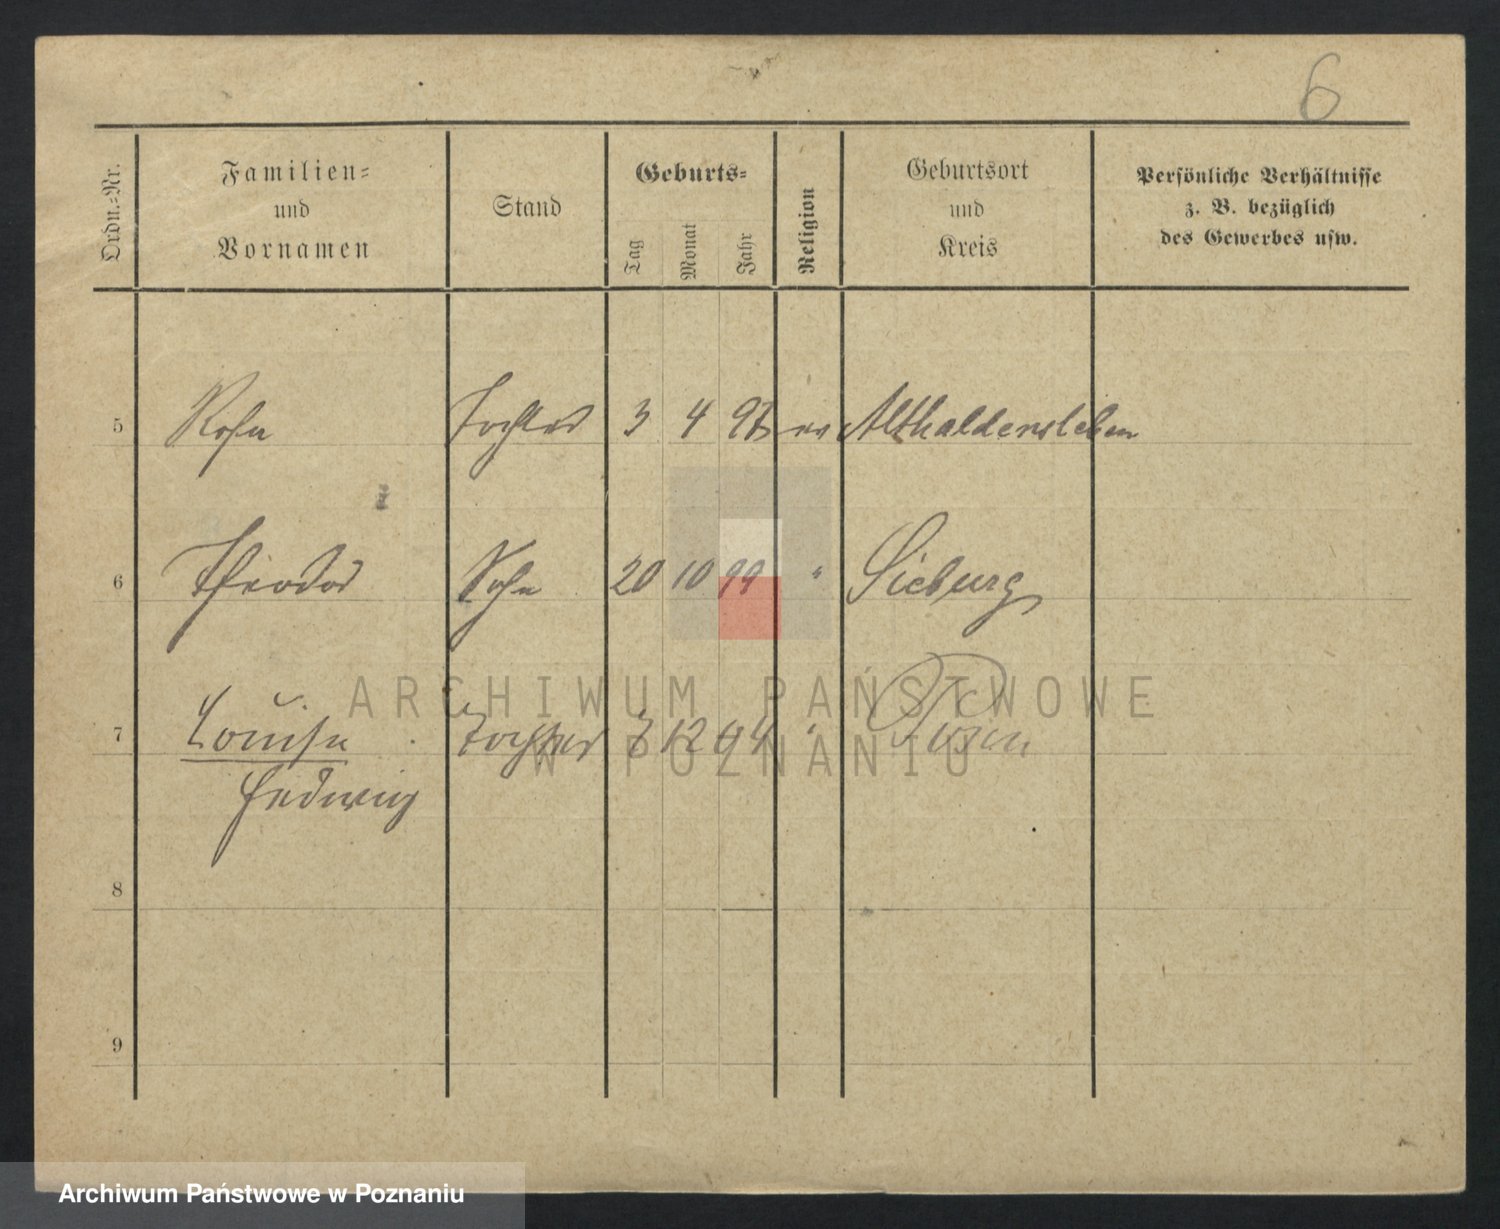 6
Ordn.=Nr.
Familien=
und
Vornamen
Stand
Geburts=
Tag
Monat
Jahr
Religion
Geburtsort
und
Kreis
Persönliche Verhältnisse
z. B. bezüglich
des Gewerbes usw.
5 Rosa Tochter 3 4 97 ev Althaldensleben
6 Theodor Sohn 20 10 99 " Sieburg
7 Louise Tochter 7 12 04 " Posen
Hedwig
8
9
ARCHIWUM PAŃSTWOWE
W POZNANIU
Archiwum Państwowe w Poznaniu